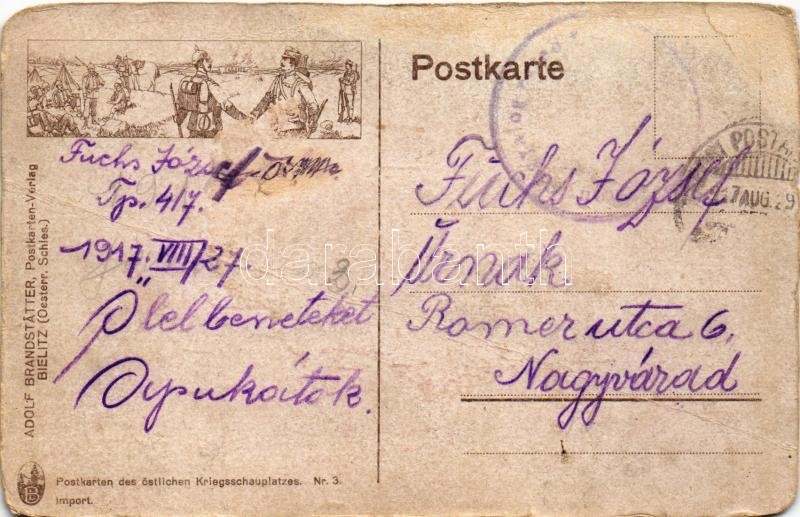 Postkarte
POSTA
17 AUG. 29
Fuchs József
Tp. 417.
1917. VIII/27
Ölel benneteket
Apukátok.
Fuchs József
Úrnak
Romer utca 6.
Nagyvárad
ADOLF BRANDSTÄTTER, Postkarten-Verlag
BIELITZ (Oesterr. Schles.)
Postkarten des östlichen Kriegsschauplatzes. Nr. 3.
Import.
darabanth